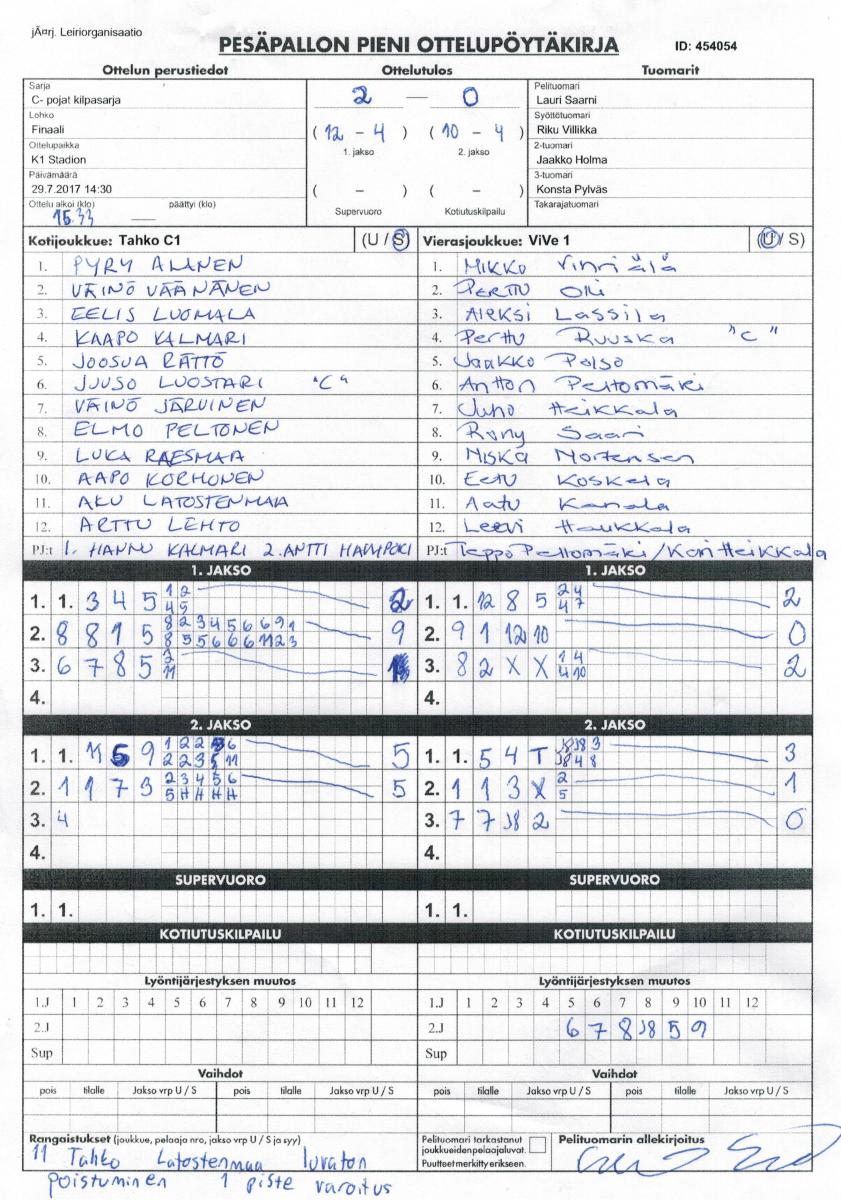 jÃ¤rj. Leiriorganisaatio
PESÄPALLON PIENI OTTELUPÖYTÄKIRJA ID: 454054
Ottelun perustiedot Ottelutulos Tuomarit
Sarja
C- pojat kilpasarja
Lohko
Finaali
Ottelupaikka
K1 Stadion
Päivämäärä
29.7.2017 14:30
Ottelu alkoi (klo) päättyi (klo)
15.33
2 — 0
( 12 - 4 ) ( 10 - 4 )
1. jakso 2. jakso
( - ) ( - )
Supervuoro Kotiutuskilpailu
Pelituomari
Lauri Saarni
Syöttötuomari
Riku Villikka
2-tuomari
Jaakko Holma
3-tuomari
Konsta Pylväs
Takarajatuomari
Kotijoukkue: Tahko C1 (U / S)
1. PYRY ALANEN
2. VÄINÖ VÄÄNÄNEN
3. EELIS LUOMALA
4. KAAPO KALMARI
5. JOOSUA RÄTTÖ
6. JUUSO LUOSTARI "C"
7. VÄINÖ JÄRVINEN
8. ELMO PELTONEN
9. LUKA RAESMAA
10. AAPO KORHONEN
11. AKU LATOSTENMAA
12. ARTTU LEHTO
PJ:t 1. HANNU KALMARI 2. ANTTI
Vierasjoukkue: ViVe 1 (U / S)
1. Mikko
2. Perttu Olli
3. Aleksi Lassila
4. Perttu Ruuska "C"
5. Jaakko Polso
6. Antton Peltomäki
7. Juho Heikkala
8. Rony Saari
9. Miska Mortensen
10. Eetu Koskela
11. Aatu Kanala
12. Leevi Haukkala
PJ:t Teppo Peltomäki / Kari Heikkala
1. JAKSO
1. 1. 3 4 5 1 2 2
4 5
2. 8 8 1 5 8 2 3 4 5 6 6 9 1 9
8 5 5 6 6 6 11 2 3
3. 6 7 8 5 2 1
11
4.
1. JAKSO
1. 1. 12 8 5 2 4 2
4 7
2. 9 1 12 10 0
3. 8 2 X X 1 4 2
4 10
4.
2. JAKSO
1. 1. 11 5 9 1 2 2 3 6 5
2 2 3 5 11
2. 1 1 7 3 2 3 4 5 6 5
5 H H H H
3. 4
4.
2. JAKSO
1. 1. 5 4 T 3 3
4 8
2. 1 1 3 X 2 1
5
3. 7 7 J8 2 0
4.
SUPERVUORO
1. 1.
SUPERVUORO
1. 1.
KOTIUTUSKILPAILU
KOTIUTUSKILPAILU
Lyöntijärjestyksen muutos
1.J 1 2 3 4 5 6 7 8 9 10 11 12
2.J
Sup
Lyöntijärjestyksen muutos
1.J 1 2 3 4 5 6 7 8 9 10 11 12
2.J 6 7 8 J8 5 9
Sup
Vaihdot
pois tilalle Jakso vrp U / S pois tilalle Jakso vrp U / S
Vaihdot
pois tilalle Jakso vrp U / S pois tilalle Jakso vrp U / S
Rangaistukset (joukkue, pelaaja nro, jakso vrp U / S ja syy)
11 Tahko Latostenmaa luvaton
poistuminen 1 piste varoitus
Pelituomari tarkastanut
joukkueiden pelaajaluvat.
Puutteet merkitty erikseen.
Pelituomarin allekirjoitus